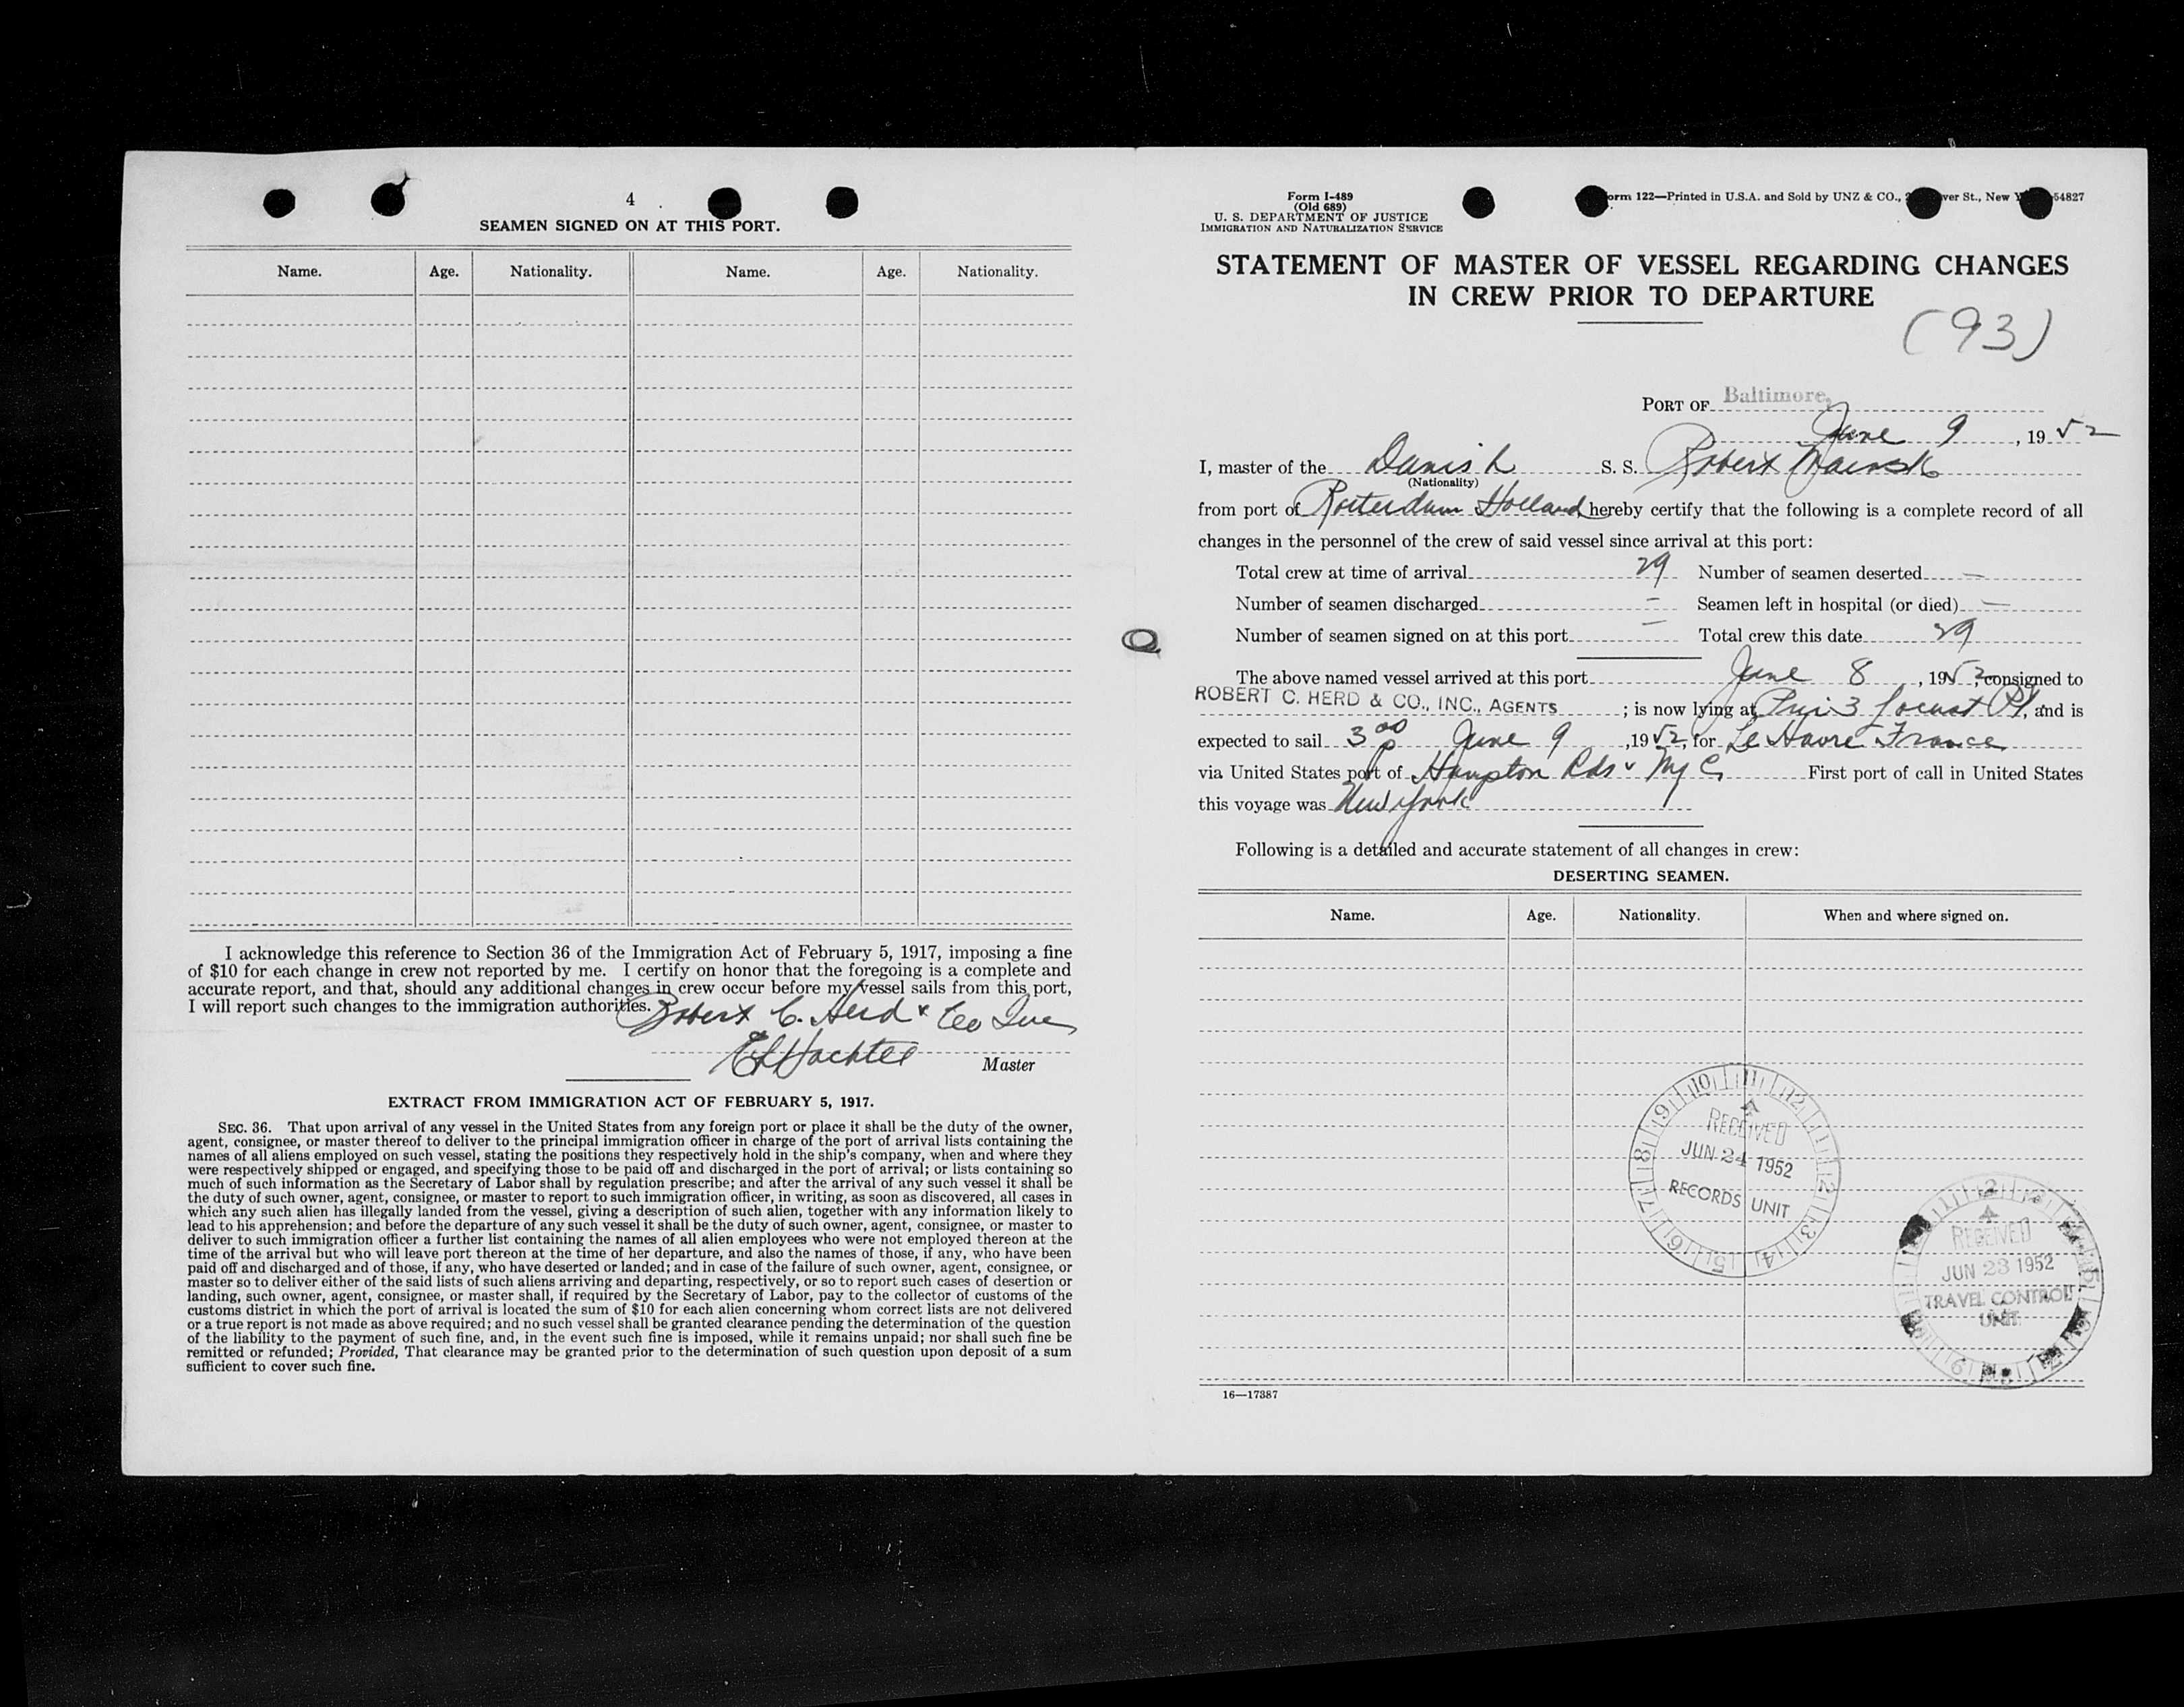 4
SEAMEN SIGNED ON AT THIS PORT.
Name. Age. Nationality. Name. Age. Nationality.
I acknowledge this reference to Section 36 of the Immigration Act of February 5, 1917, imposing a fine
of $10 for each change in crew not reported by me. I certify on honor that the foregoing is a complete and
accurate report, and that, should any additional changes in crew occur before my vessel sails from this port,
I will report such changes to the immigration authorities.
Robert C. Herd & Co Inc
Master
EXTRACT FROM IMMIGRATION ACT OF FEBRUARY 5, 1917.
SEC. 36. That upon arrival of any vessel in the United States from any foreign port or place it shall be the duty of the owner,
agent, consignee, or master thereof to deliver to the principal immigration officer in charge of the port of arrival lists containing the
names of all aliens employed on such vessel, stating the positions they respectively hold in the ship's company, when and where they
were respectively shipped or engaged, and specifying those to be paid off and discharged in the port of arrival; or lists containing so
much of such information as the Secretary of Labor shall by regulation prescribe; and after the arrival of any such vessel it shall be
the duty of such owner, agent, consignee, or master to report to such immigration officer, in writing, as soon as discovered, all cases in
which any such alien has illegally landed from the vessel, giving a description of such alien, together with any information likely to
lead to his apprehension; and before the departure of any such vessel it shall be the duty of such owner, agent, consignee, or master to
deliver to such immigration officer a further list containing the names of all alien employees who were not employed thereon at the
time of the arrival but who will leave port thereon at the time of her departure, and also the names of those, if any, who have been
paid off and discharged and of those, if any, who have deserted or landed; and in case of the failure of such owner, agent, consignee, or
master so to deliver either of the said lists of such aliens arriving and departing, respectively, or so to report such cases of desertion or
landing, such owner, agent, consignee, or master shall, if required by the Secretary of Labor, pay to the collector of customs of the
customs district in which the port of arrival is located the sum of $10 for each alien concerning whom correct lists are not delivered
or a true report is not made as above required; and no such vessel shall be granted clearance pending the determination of the question
of the liability to the payment of such fine, and, in the event such fine is imposed, while it remains unpaid; nor shall such fine be
remitted or refunded; Provided, That clearance may be granted prior to the determination of such question upon deposit of a sum
sufficient to cover such fine.
Form I-489
(Old 689)
U. S. DEPARTMENT OF JUSTICE
IMMIGRATION AND NATURALIZATION SERVICE
orm 122—Printed in U.S.A. and Sold by UNZ & CO., ver St., New Y 54827
STATEMENT OF MASTER OF VESSEL REGARDING CHANGES
IN CREW PRIOR TO DEPARTURE
(93)
PORT OF Baltimore,
June 9, 1952
I, master of the Danish S. S. Robert Maersk
(Nationality)
from port of Rotterdam Holland hereby certify that the following is a complete record of all
changes in the personnel of the crew of said vessel since arrival at this port:
Total crew at time of arrival 29 Number of seamen deserted —
Number of seamen discharged — Seamen left in hospital (or died) —
Number of seamen signed on at this port — Total crew this date 29
The above named vessel arrived at this port June 8, 1952, consigned to
ROBERT C. HERD & CO., INC., AGENTS ; is now lying at Pier 3 Locust Pt, and is
expected to sail 3 00 p June 9, 1952, for Le Havre France
via United States port of Hampton Rds & NYC First port of call in United States
this voyage was New York
Following is a detailed and accurate statement of all changes in crew:
DESERTING SEAMEN.
Name. Age. Nationality. When and where signed on.
RECEIVED
JUN 24 1952
RECORDS UNIT
RECEIVED
JUN 23 1952
TRAVEL CONTROL
UNIT
16—17387